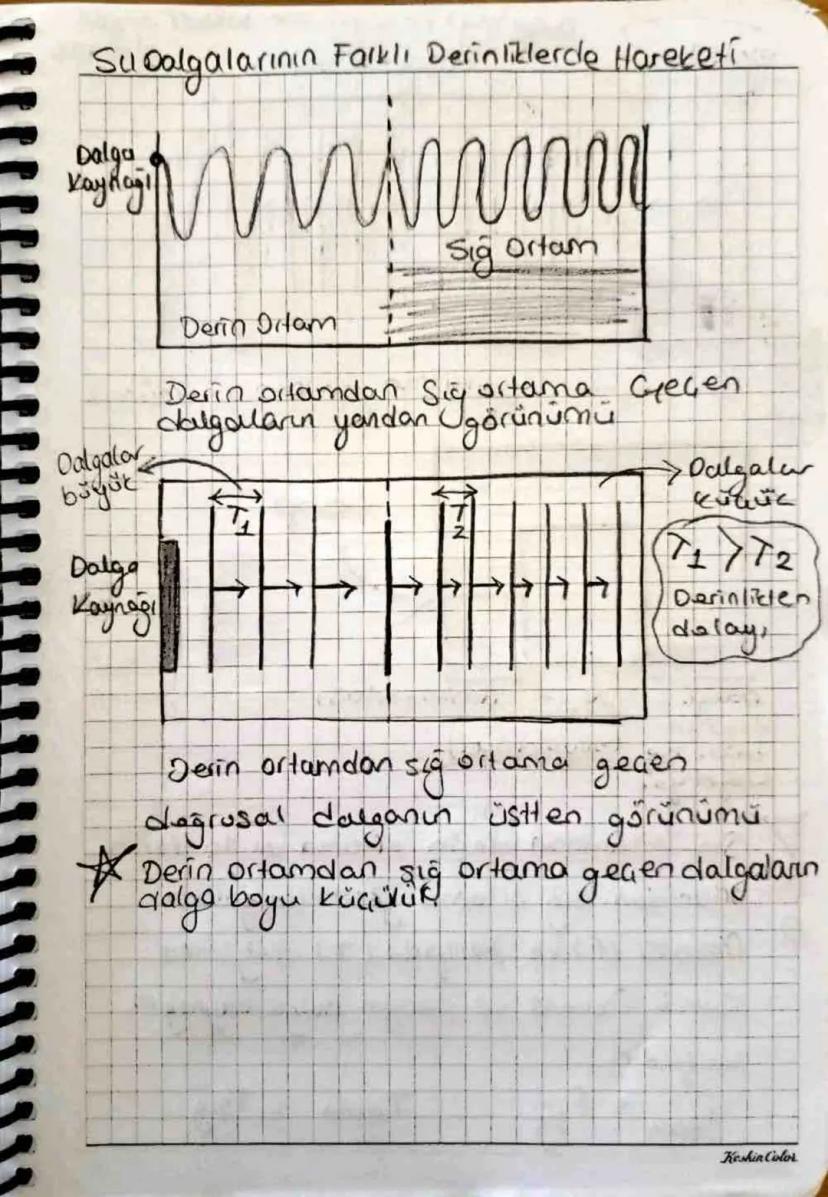 Su Dalgalarının Farklı Derinliklerde Hareketi
Dalga
Kaynağı
Sığ Ortam
Derin Ortam
Derin ortamdan Sığ ortama Geçen
dalgaların yandan görünümü
Dalgalar
büyük
Dalgalar
küçük
T1
T2
T1 > T2
Derinlikten
dolayı
Dalga
Kaynağı
Derin ortamdan sığ ortama geçen
doğrusal dalganın üstten görünümü
Derin ortamdan sığ ortama geçen dalgaların
dalga boyu küçülür
KeskinColor